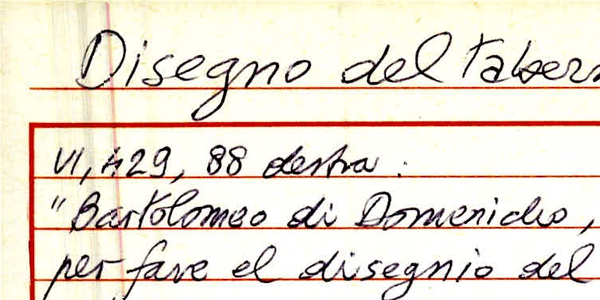 Disegno del Taber
VI, 429, 88 destra :
"Bartolomeo di Domenicho,
per fare el disegnio del